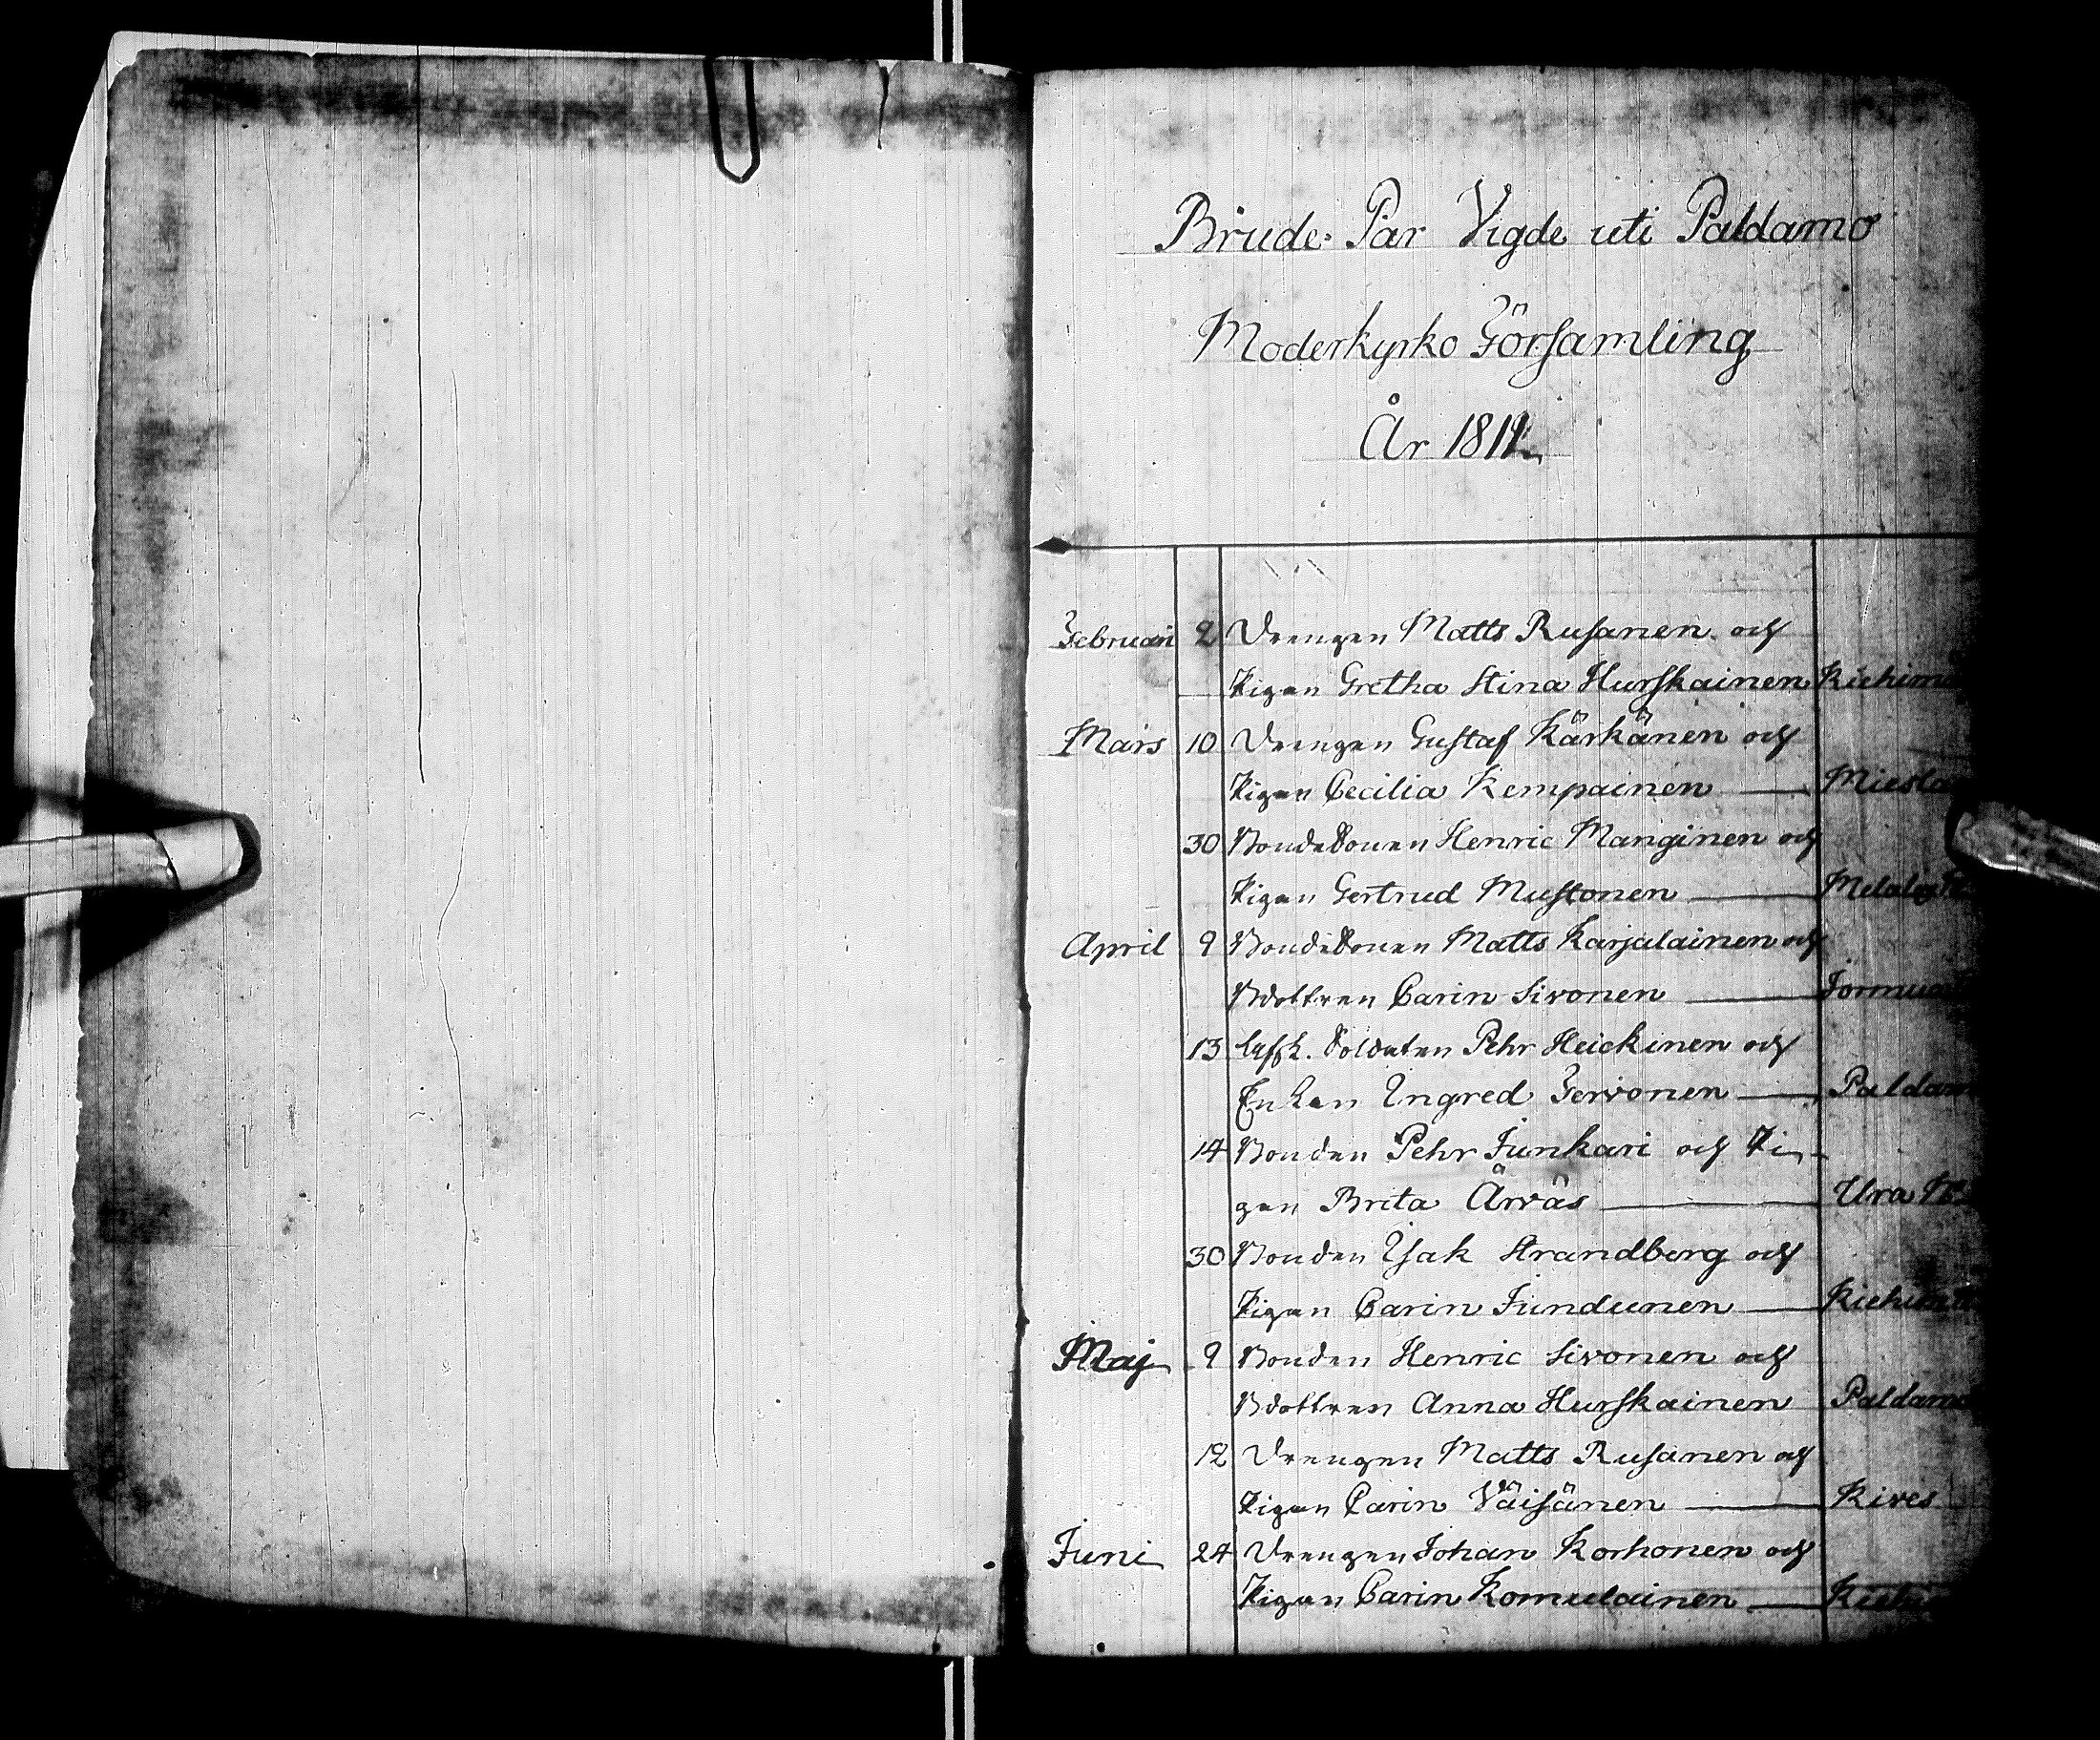 Brude Par Vigde uti Paldamo
Moderkyrko Församling
År 1811
Februari 2 Drengen Matts Rusanen och
Pigan Gretha Stina Hurskainen
Mars 10 Drengen Gustaf Kärkänen och
Pigan Cecilia Kempainen
30 BondeSonen Henric Manginen och
Pigan Gertrud Mustonen
April 9 BondeSonen Matts Karjalainen och
Bdottren Carin Sivonen
13 Afsk. Soldaten Pehr Heickinen och
Enkan Ingred Servonen Paldam
14 Bonden Pehr Junkari och Pi-
gan Brita Ärväs Ura
30 Bonden Isak Strandberg och
Pigan Carin Jundunen
Maj 9 Bonden Henric Sivonen och
Bdottren Anna Hurskainen Paldamo
12 Drengen Matts Rusanen och
Pigan Carin Väisänen Kives
Juni 24 Drengen Johan Korhonen och
Pigan Carin Komulainen